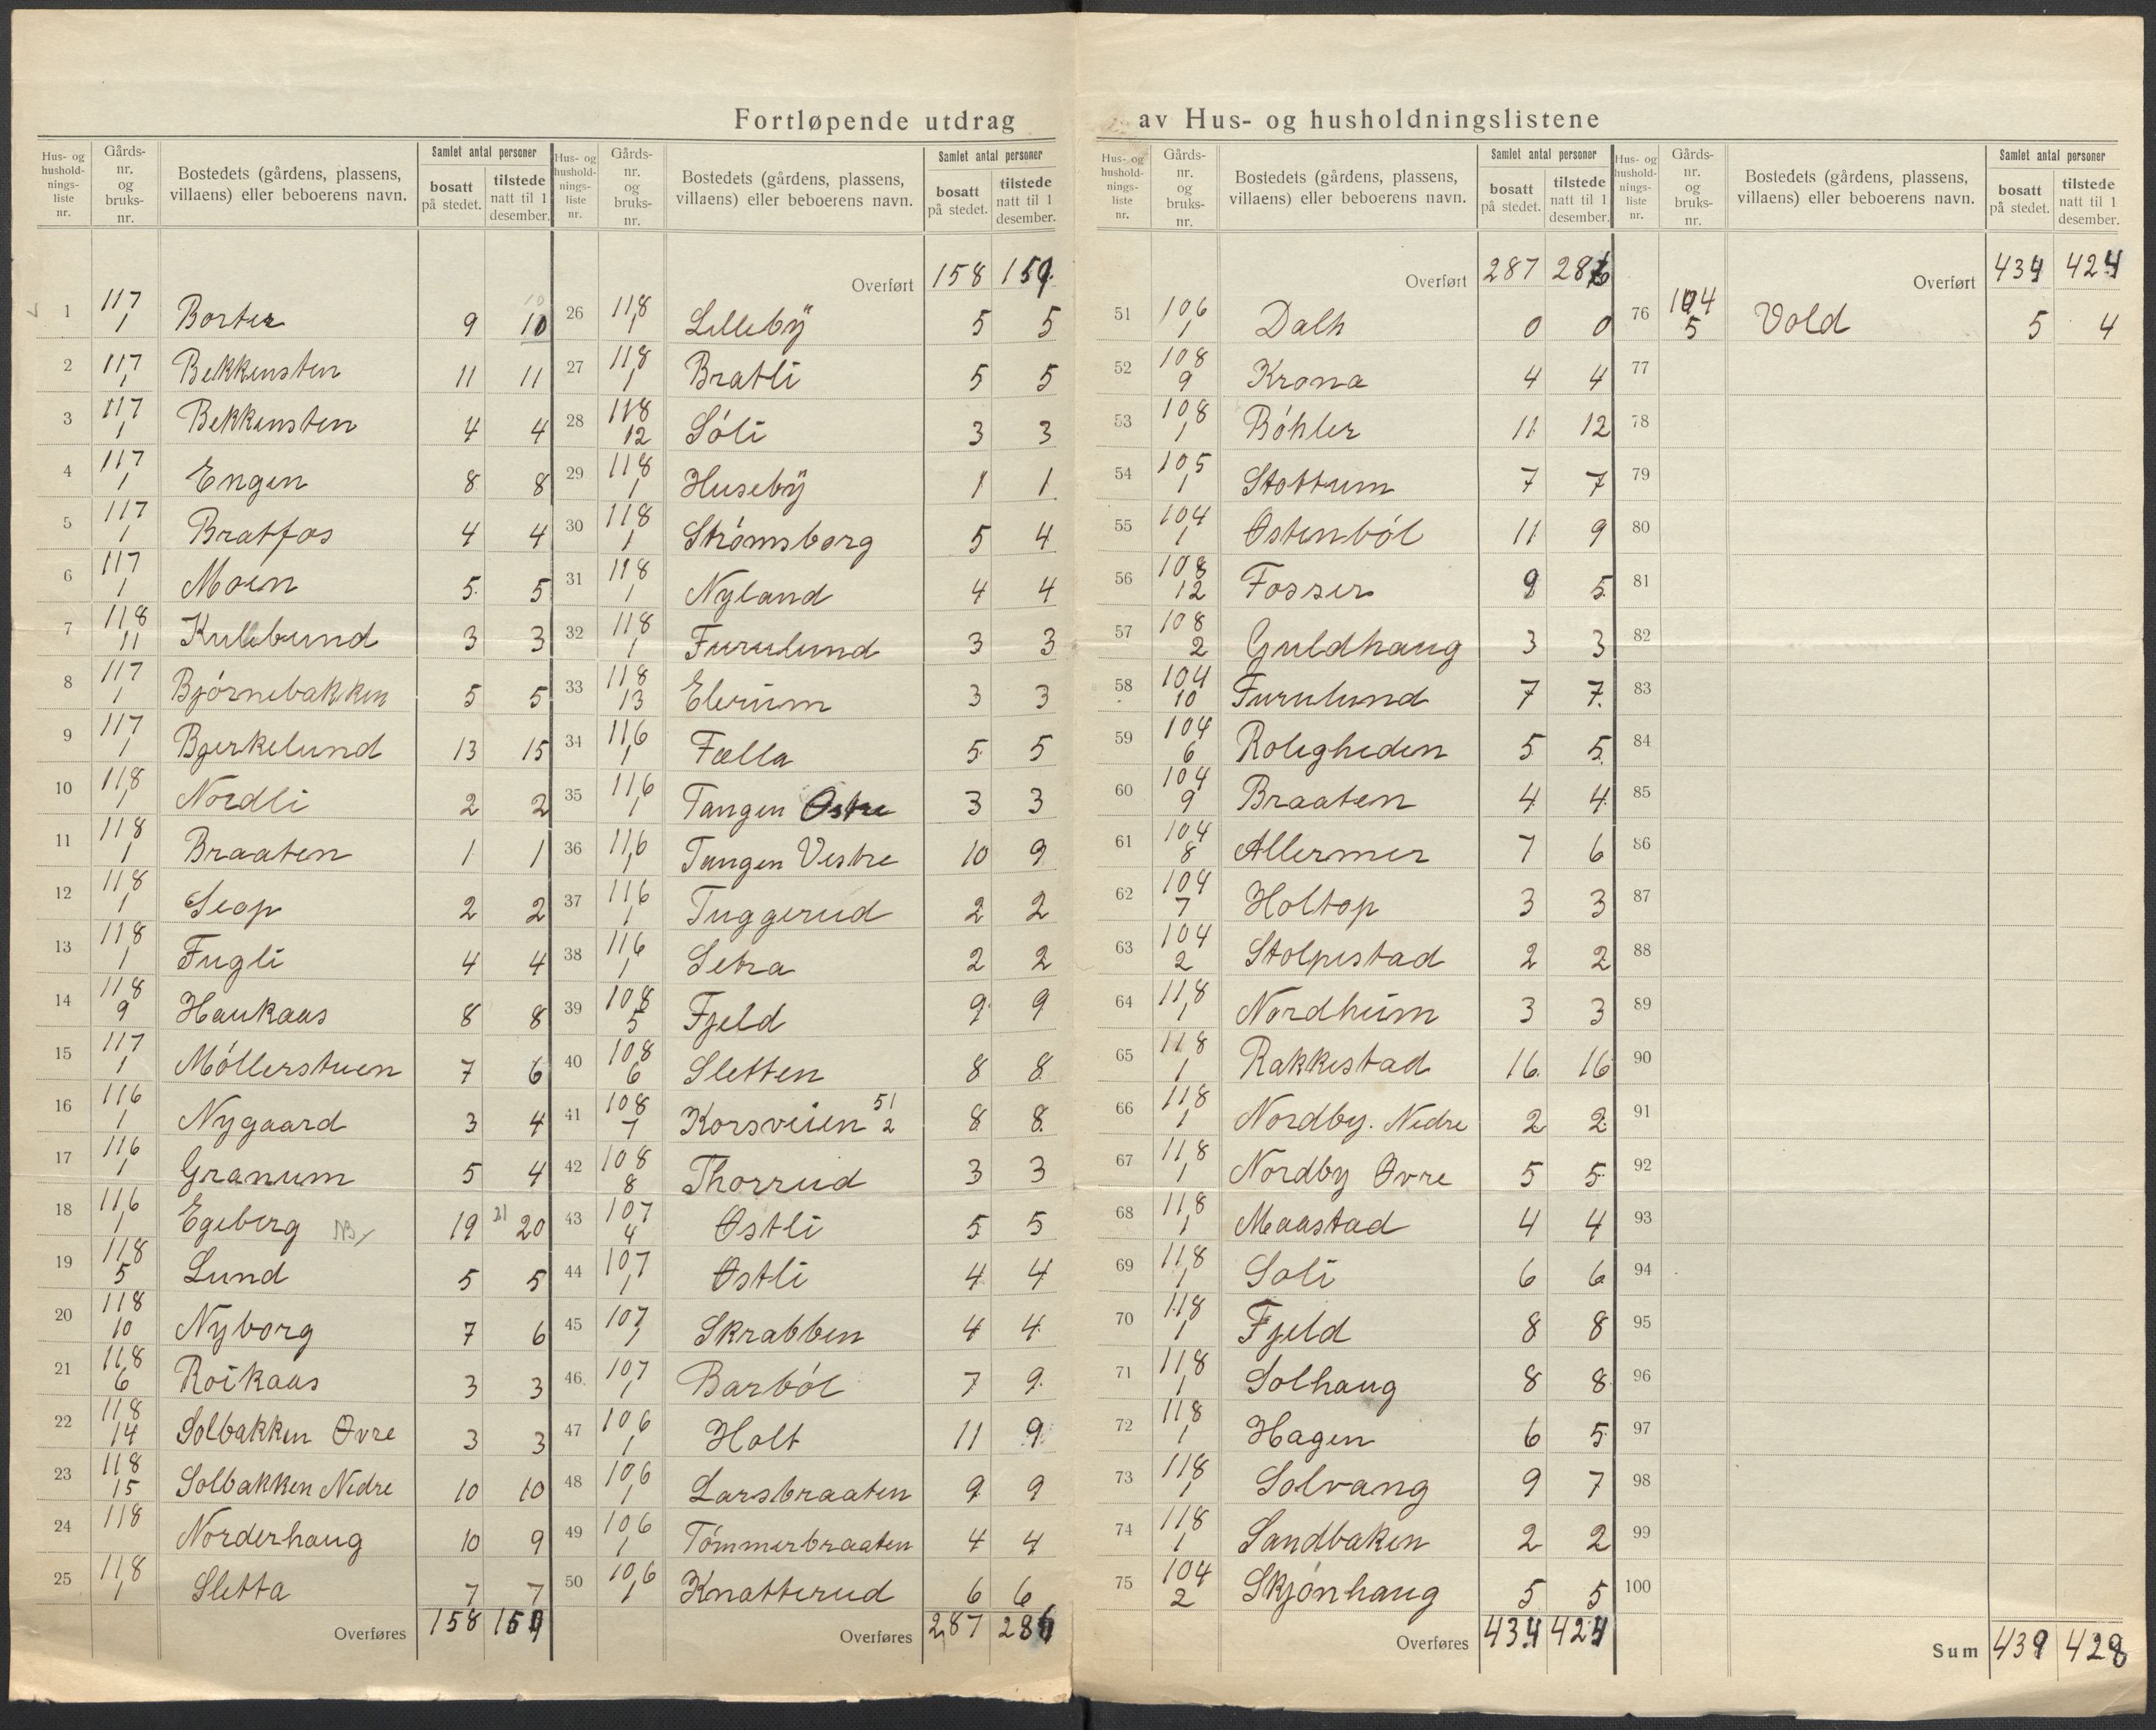 Fortløpende utdrag av Hus- og husholdningslistene
Hus- og husholdningsliste nr. | Gårds-nr. og bruks-nr. | Bostedets (gårdens, plassens, villaens) eller beboerens navn. | Samlet antal personer bosatt på stedet. | tilstede natt til 1 desember.
1 117/1 Borter 9 10
2 117/1 Bekkensten 11 11
3 117/1 Bekkensten 4 4
4 117/1 Engen 8 8
5 117/1 Bratfos 4 4
6 117/1 Moen 5 5
7 118/11 Kullebund 3 3
8 117/1 Bjørnebakken 5 5
9 117/1 Bjerkelund 13 15
10 118/1 Nordli 2 2
11 118/1 Braaten 1 1
12 118/1 Seop 2 2
13 118/1 Fugli 4 4
14 118/9 Haukaas 8 8
15 117/1 Möllerstuen 7 6
16 116/1 Nygaard 3 4
17 116/1 Granum 5 4
18 116/1 Egeberg NB 19 21 20
19 118/5 Lund 5 5
20 118/10 Nyborg 7 6
21 118/6 Roikaas 3 3
22 118/14 Solbakken Øvre 3 3
23 118/15 Solbakken Nedre 10 10
24 118 Norderhaug 10 9
25 118/1 Sletta 7 7
Overføres 158 159
Hus- og husholdningsliste nr. | Gårds-nr. og bruks-nr. | Bostedets (gårdens, plassens, villaens) eller beboerens navn. | Samlet antal personer bosatt på stedet. | tilstede natt til 1 desember.
Overført 158 159
26 118/1 Lilleby 5 5
27 118/1 Bratli 5 5
28 118/12 Sóli 3 3
29 118/1 Huseby 1 1
30 118/1 Strømsborg 5 4
31 118/1 Nyland 4 4
32 118/1 Furulund 3 3
33 118/13 Elerium 3 3
34 116/1 Fælla 5 5
35 116/1 Tangen Østre 3 3
36 116/1 Tangen Vestre 10 9
37 116/1 Tuggerud 2 2
38 116/1 Setra 2 2
39 108/5 Fjeld 9 9
40 108/6 Sletten 8 8
41 108/7 Korsveien 51/2 8 8
42 108/8 Thorrud 3 3
43 107/4 Østli 5 5
44 107/1 Østli 4 4
45 107/1 Skrabben 4 4
46 107/1 Barból 7 9
47 106/1 Holt 11 9
48 106/1 Larsbraaten 9 9
49 106/1 Tømmerbraaten 4 4
50 106/1 Knatterud 6 6
Overføres 287 286
Hus- og husholdningsliste nr. | Gårds-nr. og bruks-nr. | Bostedets (gårdens, plassens, villaens) eller beboerens navn. | Samlet antal personer bosatt på stedet. | tilstede natt til 1 desember.
Overført 287 286
51 106/1 Dalh 0 0
52 108/9 Krona 4 4
53 108/1 Bóhler 11 12
54 105/1 Stottum 7 7
55 104/1 Østenból 11 9
56 108/12 Fosser 9 5
57 108/2 Guldhaug 3 3
58 104/10 Furulund 7 7
59 104/6 Roligheden 5 5
60 104/9 Braaten 4 4
61 104/8 Allermer 7 6
62 104/7 Holtop 3 3
63 104/2 Stolpestad 2 2
64 118/1 Nordheim 3 3
65 118/1 Rakkestad 16 16
66 118/1 Nordby. Nedre 2 2
67 118/1 Nordby Øvre 5 5
68 118/1 Maastad 4 4
69 118/1 Soli 6 6
70 118/1 Fjeld 8 8
71 118/1 Solhaug 8 8
72 118/1 Hagen 6 5
73 118/1 Solvang 9 7
74 118/1 Sandbaken 2 2
75 104/2 Skjønhaug 5 5
Overføres 434 424
Hus- og husholdningsliste nr. | Gårds-nr. og bruks-nr. | Bostedets (gårdens, plassens, villaens) eller beboerens navn. | Samlet antal personer bosatt på stedet. | tilstede natt til 1 desember.
Overført 434 424
76 104/5 Vold 5 4
77
78
79
80
81
82
83
84
85
86
87
88
89
90
91
92
93
94
95
96
97
98
99
100
Sum 439 428